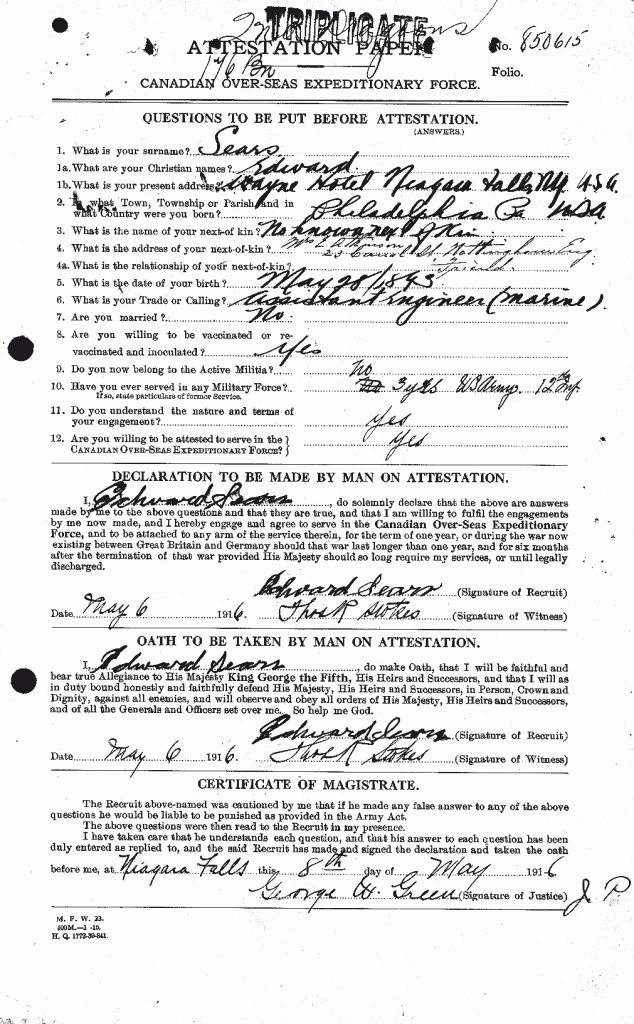 TRIPLICATE
ATTESTATION PAPER
No. 850615
176 Bn
Folio.
CANADIAN OVER-SEAS EXPEDITIONARY FORCE.
QUESTIONS TO BE PUT BEFORE ATTESTATION.
(ANSWERS.)
1. What is your surname? Sears
1a. What are your Christian names? Edward
1b. What is your present address? Wayne Hotel Niagara Falls N.Y. U.S.A.
2. In what Town, Township or Parish, and in what Country were you born? Philadelphia Pa USA
3. What is the name of your next-of-kin? No known next of kin
4. What is the address of your next-of-kin? Mrs Atkinson
23 St. Nottingham Eng
4a. What is the relationship of your next-of-kin? Friend
5. What is the date of your birth? May 28/1893
6. What is your Trade or Calling? Assistant Engineer (Marine).
7. Are you married? No.
8. Are you willing to be vaccinated or re-
vaccinated and inoculated? Yes
9. Do you now belong to the Active Militia? No
10. Have you ever served in any Military Force? 3 yrs US Army. 12th Inf
If so, state particulars of former Service.
11. Do you understand the nature and terms of
your engagement? Yes
12. Are you willing to be attested to serve in the
CANADIAN OVER-SEAS EXPEDITIONARY FORCE? Yes
DECLARATION TO BE MADE BY MAN ON ATTESTATION.
I, Edward Sears, do solemnly declare that the above are answers
made by me to the above questions and that they are true, and that I am willing to fulfil the engagements
by me now made, and I hereby engage and agree to serve in the Canadian Over-Seas Expeditionary
Force, and to be attached to any arm of the service therein, for the term of one year, or during the war now
existing between Great Britain and Germany should that war last longer than one year, and for six months
after the termination of that war provided His Majesty should so long require my services, or until legally
discharged.
Edward Sears (Signature of Recruit)
Date May 6 1916. Thos R Stokes (Signature of Witness)
OATH TO BE TAKEN BY MAN ON ATTESTATION.
I, Edward Sears, do make Oath, that I will be faithful and
bear true Allegiance to His Majesty King George the Fifth, His Heirs and Successors, and that I will as
in duty bound honestly and faithfully defend His Majesty, His Heirs and Successors, in Person, Crown and
Dignity, against all enemies, and will observe and obey all orders of His Majesty, His Heirs and Successors,
and of all the Generals and Officers set over me. So help me God.
Edward Sears (Signature of Recruit)
Date May 6 1916. Thos R Stokes (Signature of Witness)
CERTIFICATE OF MAGISTRATE.
The Recruit above-named was cautioned by me that if he made any false answer to any of the above
questions he would be liable to be punished as provided in the Army Act.
The above questions were then read to the Recruit in my presence.
I have taken care that he understands each question, and that his answer to each question has been
duly entered as replied to, and the said Recruit has made and signed the declaration and taken the oath
before me, at Niagara Falls this 8th day of May 1916
George H. Green (Signature of Justice) J P
M. F. W. 23.
400M.—1-16.
H. Q. 1772-39-841.